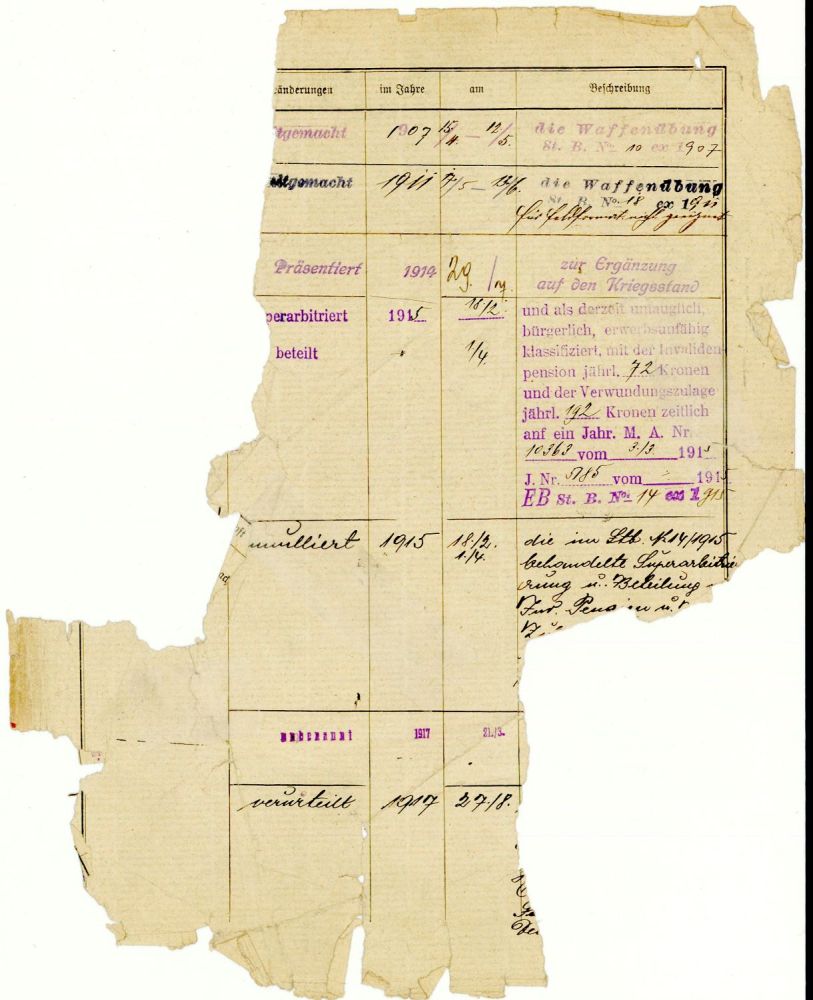 änderungen im Jahre am Beschreibung
tgemacht 1907 15/4. — 12/5. die Waffenübung
St. B. No. 10 ex 1907
mitgemacht 1911 7/5 — 12/6. die Waffenübung
St. B. No. 18 ex 1911
für nicht geeignet
Präsentiert 1914 29. / zur Ergänzung
auf den Kriegsstand
perarbitriert 1915 18/2. und als derzeit untauglich,
bürgerlich, erwerbsunfähig
beteilt " 1/4. klassifiziert, mit der Invaliden
pension jährl. 72 Kronen
und der Verwundungszulage
jährl. 192 Kronen zeitlich
auf ein Jahr. M. A. Nr.
10363 vom 3/3 1915
J. Nr. vom 1915
EB St. B. No. 14 ex 1915
nnulliert 1915 18./2. die im Stb. No 14/1915
1./4. behandelte Superarbitrie
rung u. Beteilung
Inv. Pension u.
1917 21./3.
verurteilt 1917 27/8.